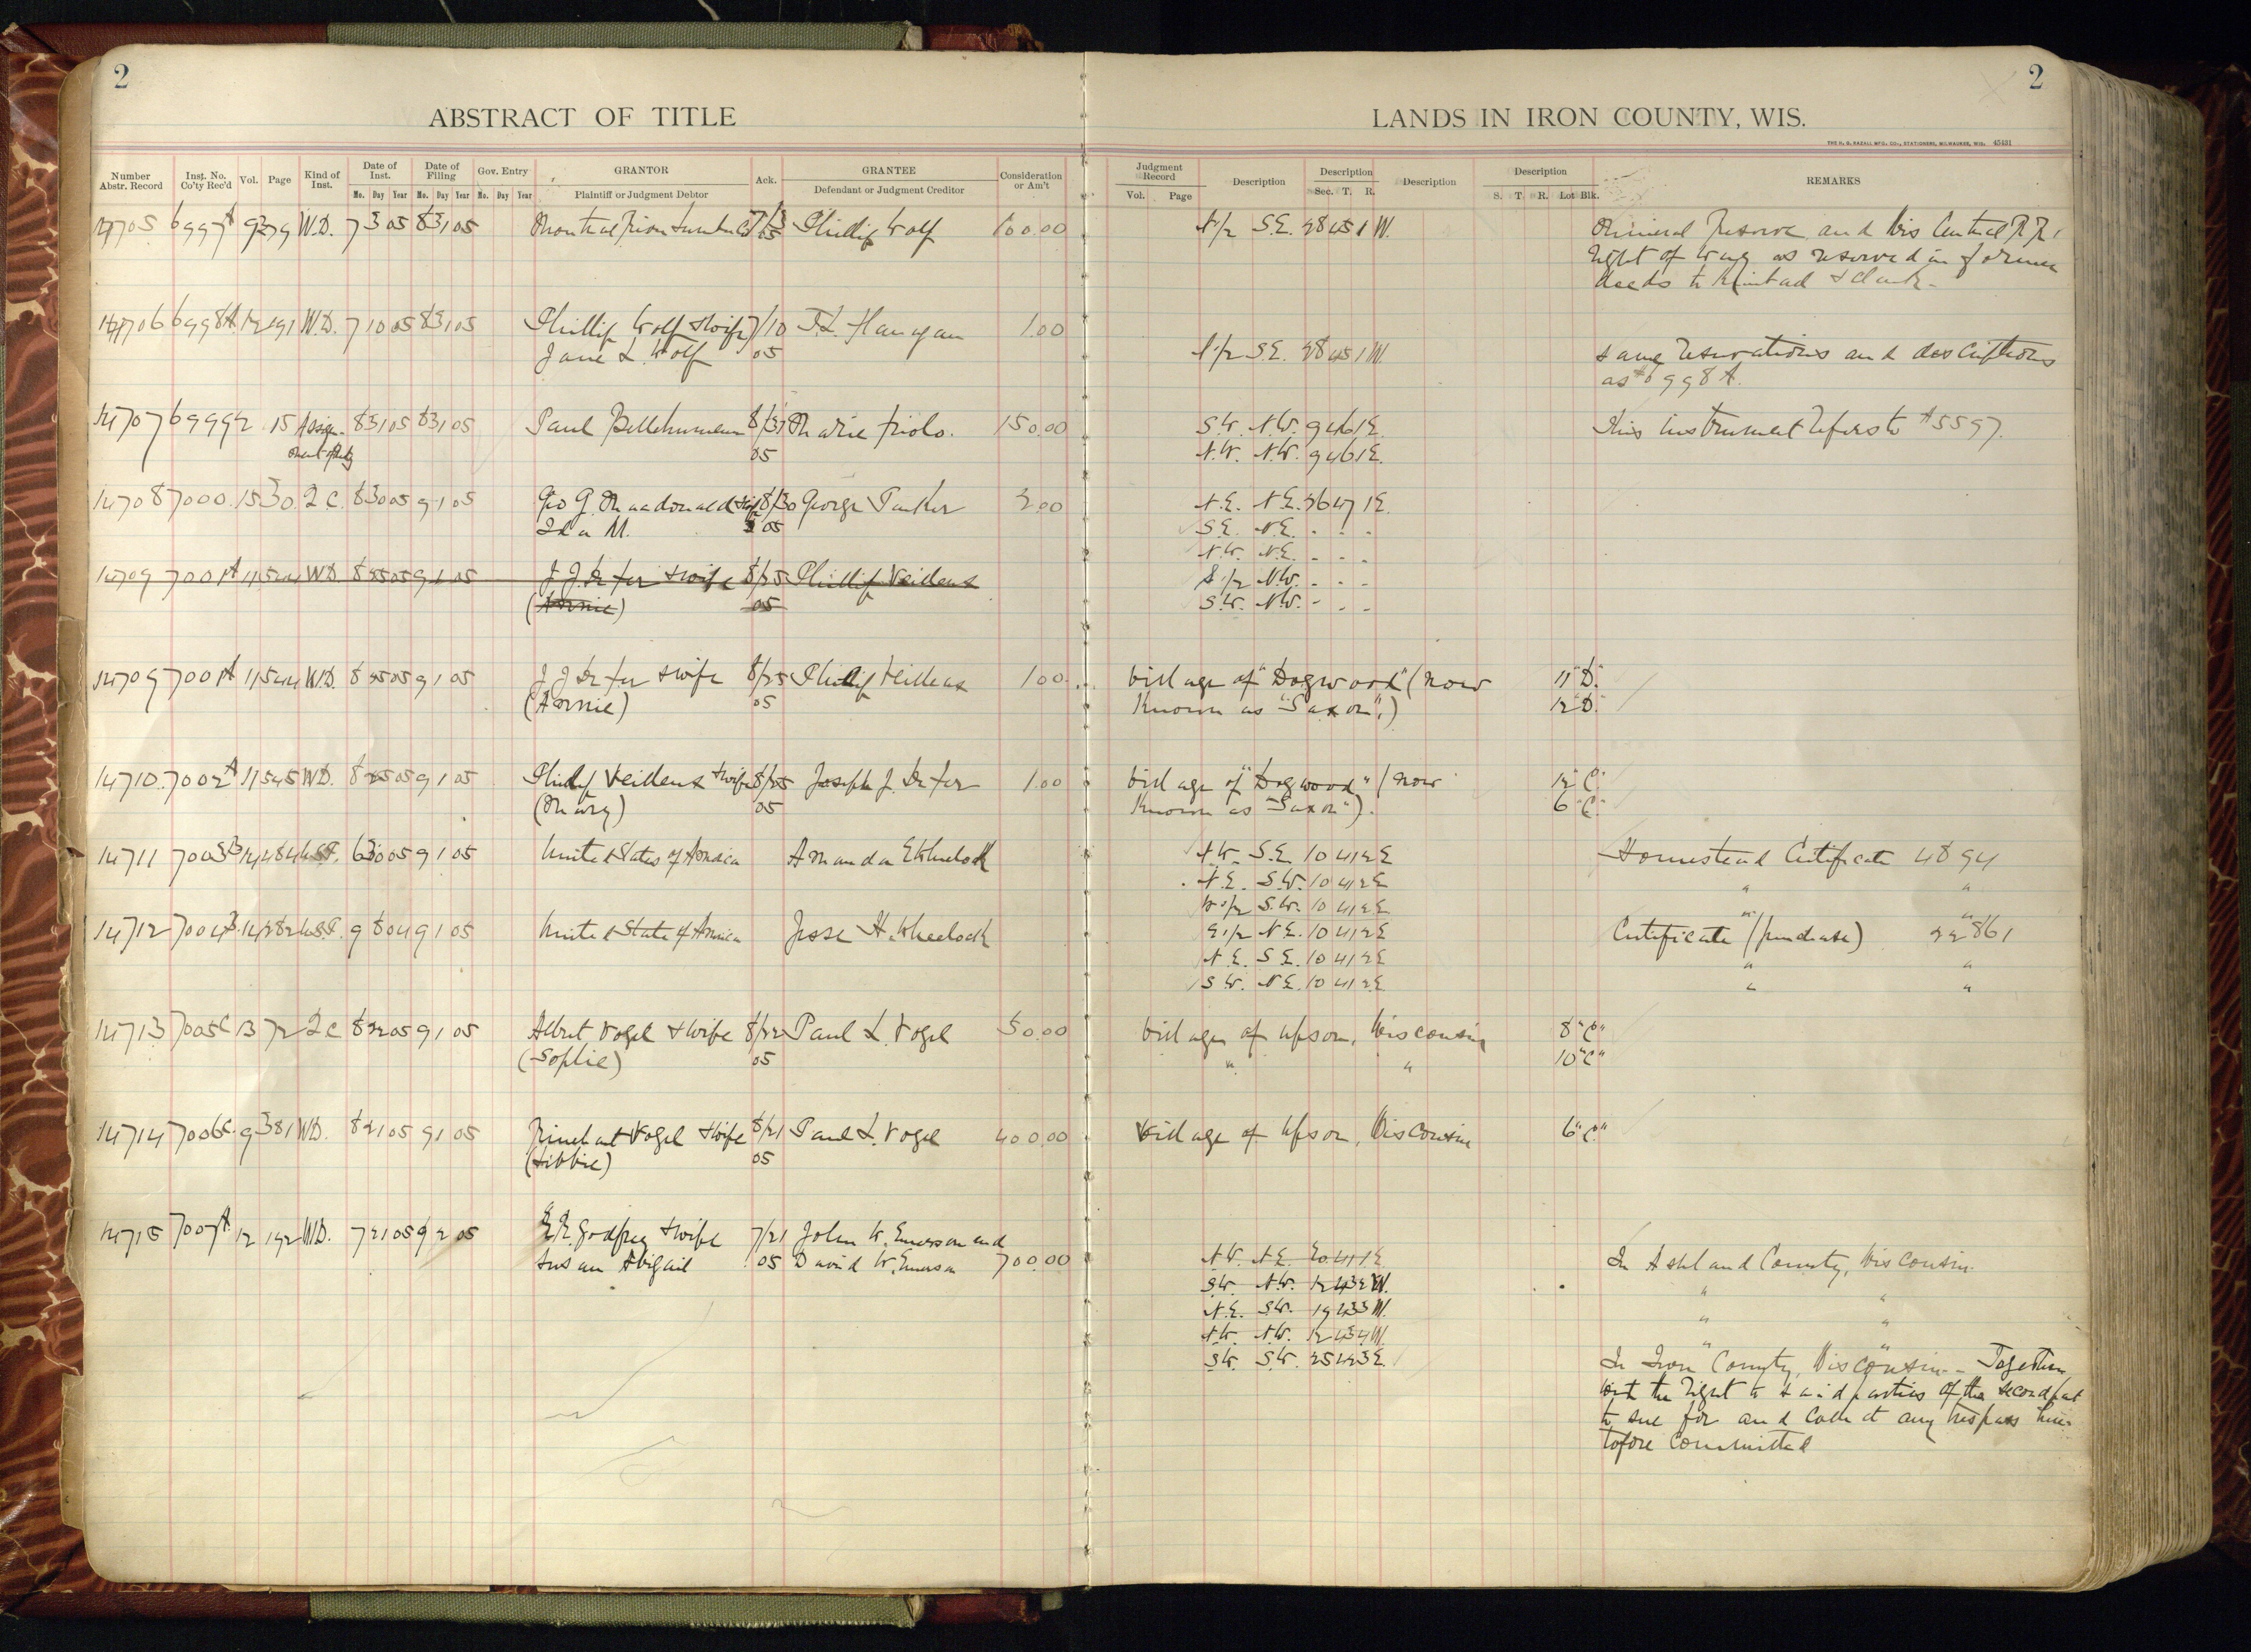 2
2
ABSTRACT OF TITLE
LANDS IN IRON COUNTY, WIS.
THE H. G. RAZALL MFG. CO., STATIONERS, MILWAUKEE, WIS. 45431
Number Abstr. Record
Inst. No. Co'ty Rec'd
Vol.
Page
Kind of Inst.
Date of Inst.
Mo. Day Year
Date of Filing
Mo. Day Year
Gov. Entry
Mo. Day Year
GRANTOR
Plaintiff or Judgment Debtor
Ack.
GRANTEE
Defendant or Judgment Creditor
Consideration or Am't
Judgment Record
Vol. Page
Description
Description
Sec. T. R.
Description
Description
S. T. R. Lot Blk.
REMARKS
14705 6997A 9 279 W.D. 7 3 05 8 31 05 Montreal River Lumber Co 7/3 Phillip Wolf 100.00 N 1/2 S.E. 28 45 1 W. Mineral Reserve and Wis Central R.R.
05 right of way as reserved in former
deeds to &
14706 6998A. 12 191 W.D. 7 10 05 8 31 05 Phillip Wolf & wife 7/10 T.L. Flanagan 1.00
Jane L Wolf 05 N 1/2 S.E. 28 45 1 W. same reservations and descriptions
as # 6998 A.
14707 6999 2 15 Assign- 8 31 05 8 31 05 Paul 8/31 Marie 150.00 S.W. N.W. 9 46 1 E. This instrument refers to A5597.
ment of 05 N.W. N.W. 9 46 1 E.
14708 7000 15 30 2 C. 8 30 05 9 1 05 Geo G. Macdonald & wife 8/30 George Parker 2.00 N.E. N.E. 26 47 1 E.
Ida M. 05 S.E. N.E. " " "
N.W. N.E. " " "
14709 7001A 11 544 W.D. 8 25 05 9 1 05 J.J. Defer & wife 8/25 Phillip Veilleux S 1/2 N.W. " " "
(Annie) 05 S.W. N.W. " " "
14709 7001A 11 544 W.D. 8 25 05 9 1 05 J J Defer & wife 8/25 Phillip Veilleux 1.00 Village of "Dogwood" (now 11 "D."
(Annie) 05 Known as "Saxon".) 12 "D."
14710 7002A 11 545 W.D. 8 25 05 9 1 05 Philip Veilleux & wife 8/25 Joseph J. Defer 1.00 Village of "Dogwood" (now 12 "C."
(Mary) 05 Known as "Saxon"). 6 "C."
14711 7003B 14 484 U.S.P. 6 30 05 9 1 05 United States of America Amanda E Wheelock N.W. S.E. 10 41 2 E Homestead Certificate 4894
N.E. S.W. 10 41 2 E " "
W 1/2 S.W. 10 41 2 E " "
14712 7004B. 14 282 U.S.P. 9 8 04 9 1 05 United State of America Jesse H. Wheelock E 1/2 N.E. 10 41 2 E Certificate (purchase) 22861
N.E. S.E. 10 41 2 E " "
S W. N E. 10 41 2 E " "
14713 7005C 13 72 2 C 8 22 05 9 1 05 Albert Vogel & wife 8/22 Paul L. Vogel 50.00 Village of Upson, Wisconsin 8 "C"
(Sophie) 05 " " 10 "C"
14714 7006C. 9 381 W.D. 8 21 05 9 1 05 Rinehart Vogel & wife 8/21 Paul L. Vogel 400.00 Village of Upson, Wisconsin 6 "C."
(Libbie) 05
14715 7007A 12 192 W.D. 7 21 05 9 2 05 Godfrey & wife 7/21 John W. Emerson and
Susan Abigail 05 David W. Emerson 700.00 N.W. N.E. 20 41 1 E In Ashland County, Wisconsin.
S.W. N.W. 12 43 2 W. " "
N.E. S.W. 19 43 3 W. " "
N.W. N.W. 12 43 4 W. " "
S.W. S.W. 25 42 3 E. In Iron County, Wisconsin - Together
with the right to said parties of the second part
to sue for and collect any trespass here-
tofore committed